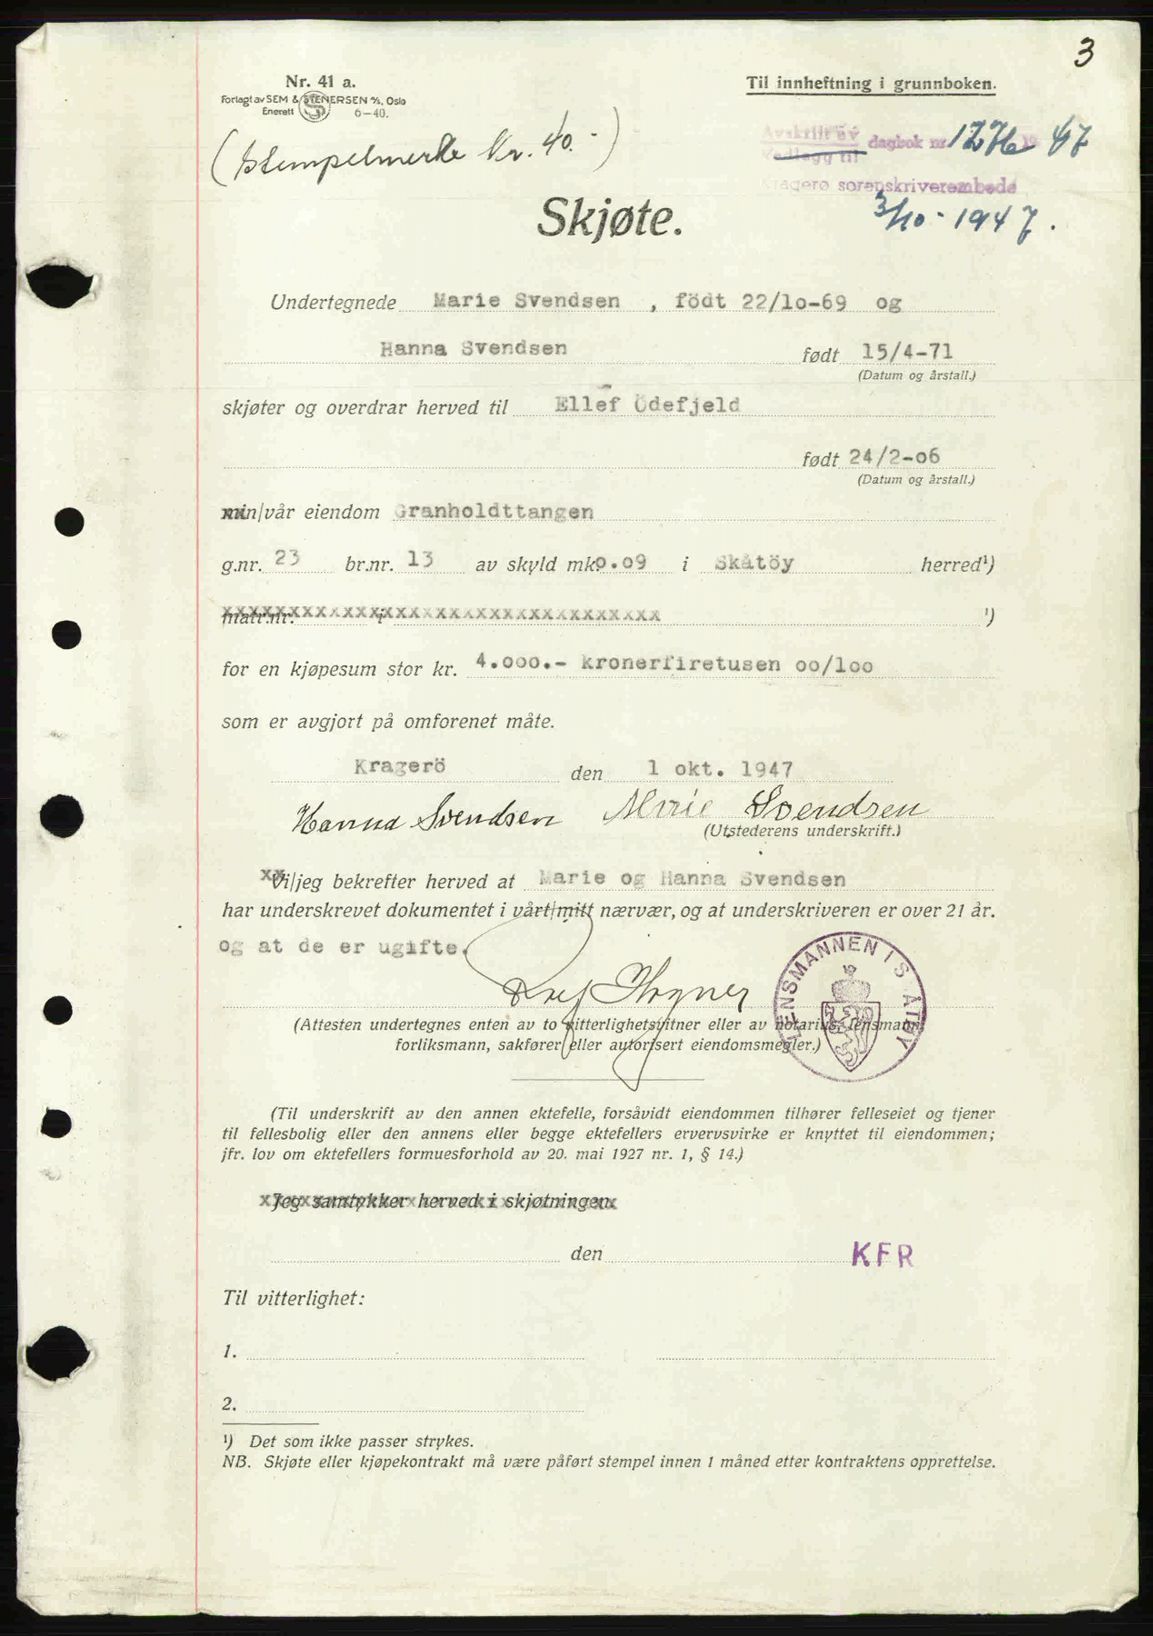 3
Nr. 41 a.
Forlagt av SEM & STENERSEN A/S, Oslo
Enerett 6-40.
Til innheftning i grunnboken.
(Stempelmerke Kr. 40.-)
Avskrift av
Vedlegg til dagbok nr. 1276 19 47
Kragerø sorenskriverembede
3/10-1947.
Skjøte.
Undertegnede Marie Svendsen , födt 22/10-69 og
Hanna Svendsen født 15/4-71
(Datum og årstall.)
skjøter og overdrar herved til Ellef Ödefjeld
født 24/2-06
(Datum og årstall.)
min/vår eiendom Granholdttangen
g.nr. 23 br.nr. 13 av skyld mk. 0.09 i Skåtöy herred¹)
matr.nr. i ¹)
for en kjøpesum stor kr. 4.000.- kronerfiretusen 00/100
som er avgjort på omforenet måte.
Kragerö den 1 okt. 1947
Hanna Svendsen Marie Svendsen
(Utstederens underskrift.)
Vi/jeg bekrefter herved at Marie og Hanna Svendsen
har underskrevet dokumentet i vårt/mitt nærvær, og at underskriveren er over 21 år.
og at de er ugifte.
LENSMANNEN I SKÅTØY
(Attesten undertegnes enten av to vitterlighetsvitner eller av notarius, lensmann,
forliksmann, sakfører eller autorisert eiendomsmegler.)
(Til underskrift av den annen ektefelle, forsåvidt eiendommen tilhører felleseiet og tjener
til fellesbolig eller den annens eller begge ektefellers ervervsvirke er knyttet til eiendommen;
jfr. lov om ektefellers formuesforhold av 20. mai 1927 nr. 1, § 14.)
Jeg samtykker herved i skjøtningen.
den KFR
Til vitterlighet:
1.
2.
¹) Det som ikke passer strykes.
NB. Skjøte eller kjøpekontrakt må være påført stempel innen 1 måned etter kontraktens opprettelse.